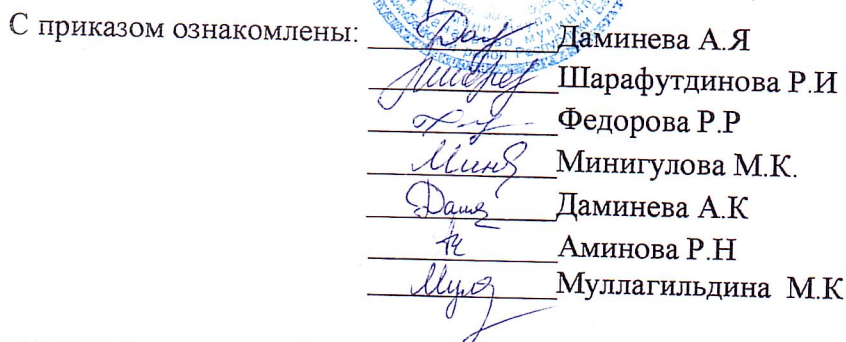 С приказом ознакомлены: Даминева А.Я
Шарафутдинова Р.И
Федорова Р.Р
Минигулова М.К.
Даминева А.К
Аминова Р.Н
Муллагильдина М.К